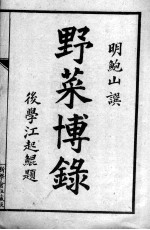 明鮑山譔
野菜博錄
後學江起鯤題